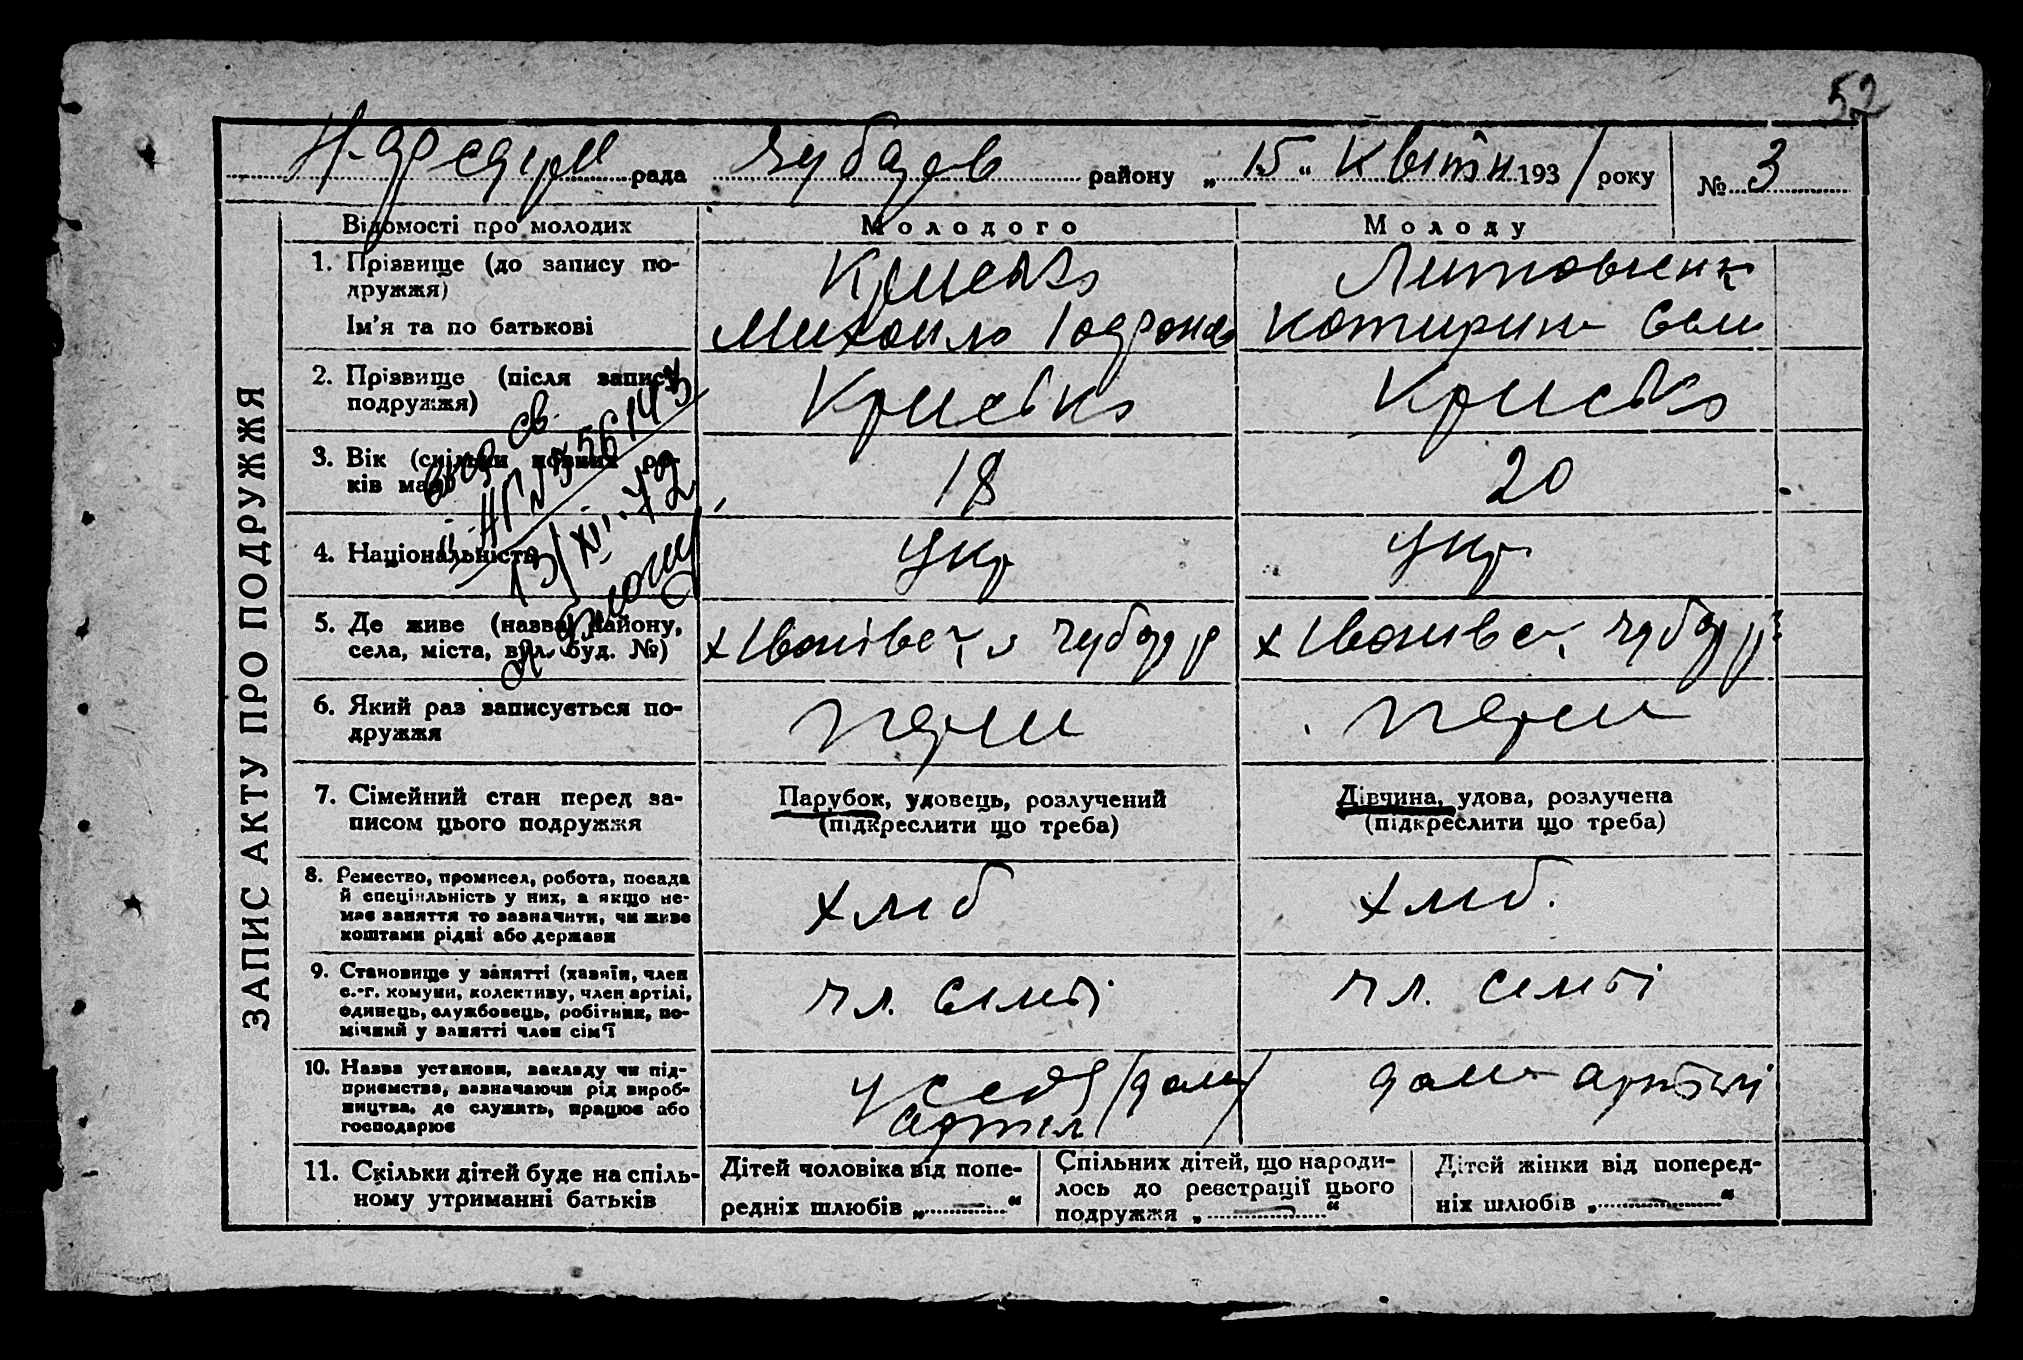 52
рада Чубарів району „15“ Квітн 1931 року № 3
ЗАПИС АКТУ ПРО ПОДРУЖЖЯ
Відомості про молодих Молодого Молоду
1. Прізвище (до запису по-
дружжя)
Крисько Литовченк
Ім'я та по батькові Михайло Катирина
2. Прізвище (після запису
подружжя)
Крисько Крисько
3. Вік (скільки повних ро-
ків має)
18 20
4. Національність Укр Укр.
13/XII-72
5. Де живе (назва району,
села, міста, вул. буд. №)
х Іванівка Чубар р х Іванівка Чубар р
6. Який раз записується по-
дружжя
перш перш
7. Сімейний стан перед за-
писом цього подружжя
Парубок, удовець, розлучений
(підкреслити що треба)
Дівчина, удова, розлучена
(підкреслити що треба)
8. Ремество, промисел, робота, посада
й спеціяльність у них, а якщо не-
має заняття то зазначити, чи живе
коштами рідні або держави
хліб хліб.
9. Становище у занятті (хазяїн, член
с.-г. комуни, колективу, член артілі,
одинець, службовець, робітник, по-
мічний у занятті член сім'ї
чл. сімьі чл. сімьі
10. Назва установи, закладу чи під-
приємства, зазначаючи рід вироб-
ництва, де служить, працює або
господарює
у себе дома артіл
дома артілі
11. Скільки дітей буде на спіль-
ному утриманні батьків
Дітей чоловіка від попе-
редніх шлюбів „—“
Спільних дітей, що народи-
лось до реєстрації цього
подружжя „—“
Дітей жінки від поперед-
ніх шлюбів „—“